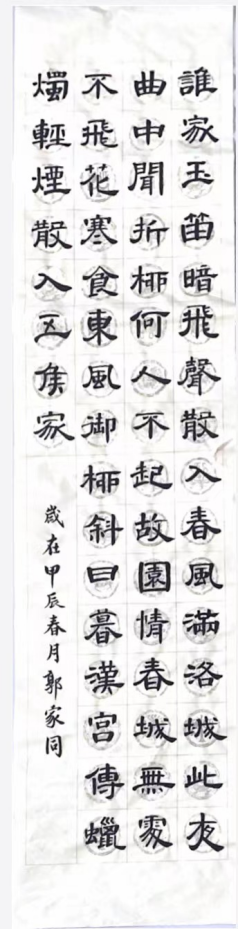 誰家玉笛暗飛聲散入春風滿洛城此夜
曲中聞折柳何人不起故園情春城無處
不飛花寒食東風御柳斜日暮漢宮傳蠟
燭輕煙散入五侯家
歲在甲辰春月郭家同